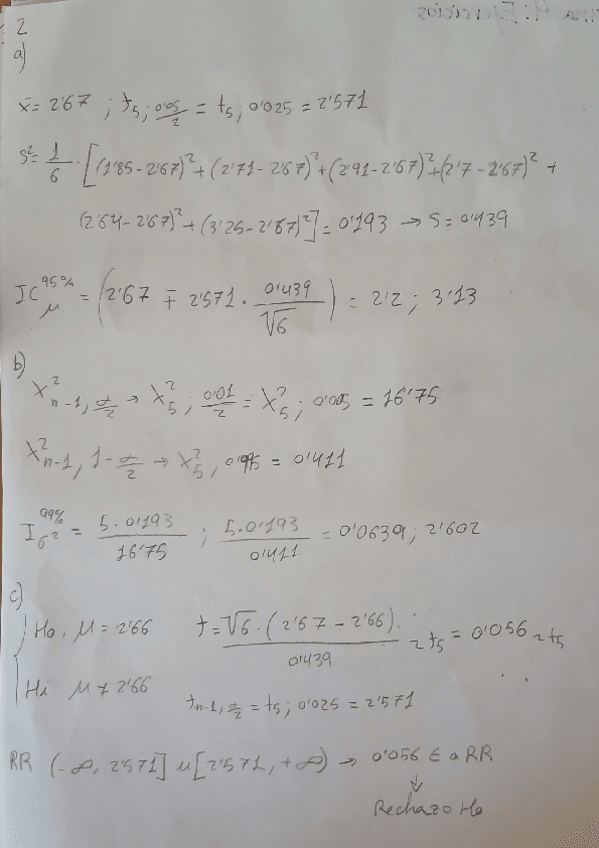 2
a)
x̄ = 2'67 ; t5; 0'05/2 = t5; 0'025 = 2'571
S² = 1/6 · [(1'85 - 2'67)² + (2'71 - 2'67)² + (2'91 - 2'67)² + (2'7 - 2'67)² +
(2'64 - 2'67)² + (3'25 - 2'67)²] = 0'193 → S = 0'439
IC μ 95% = (2'67 ∓ 2'571 · 0'439/√6) = 2'2 ; 3'13
b)
X²n-1, α/2 → X²5; 0'01/2 = X²5; 0'005 = 16'75
X²n-1, 1-α/2 → X²5, 0'995 = 0'411
I σ² 99% = 5·0'193/16'75 ; 5·0'193/0'411 = 0'0639 ; 2'602
c)
Ho. μ = 2'66 t = √6 · (2'67 - 2'66)/0'439 ~ t5 = 0'056 ~ t5
Hi μ ≠ 2'66 tn-1, α/2 = t5; 0'025 = 2'571
RR. (-∞, 2'571] u [2'571, +∞) → 0'056 ∈ a RR
⇓
Rechazo Ho